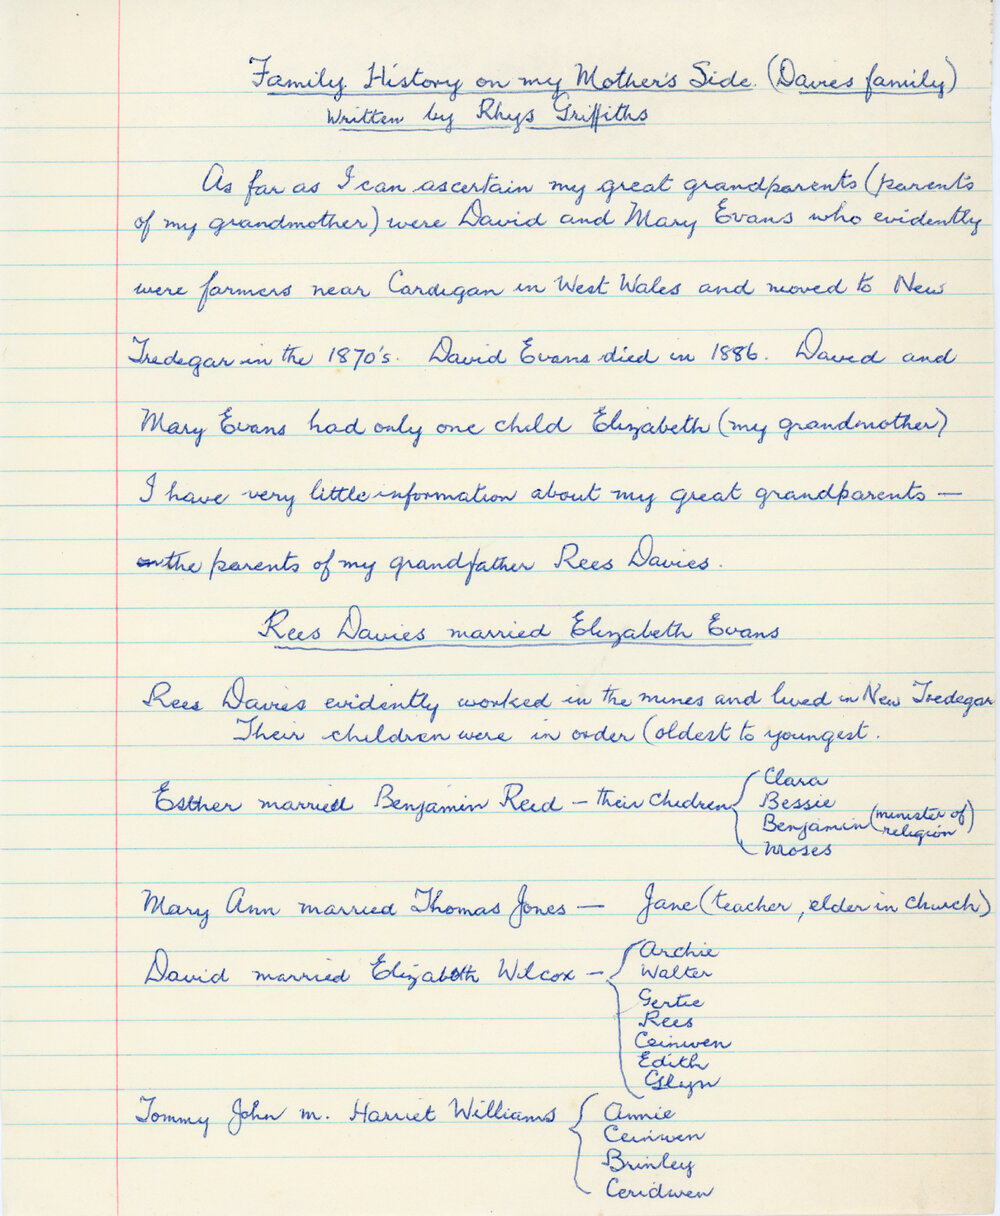 Family History on my Mother's Side. (Davies family)
Written by Rhys Griffiths
As far as I can ascertain my great grandparents (parents
of my grandmother) were David and Mary Evans who evidently
were farmers near Cardigan in West Wales and moved to New
Tredegar in the 1870's. David Evans died in 1886. David and
Mary Evans had only one child Elizabeth (my grandmother)
I have very little information about my great grandparents —
the parents of my grandfather Rees Davies.
Rees Davies married Elizabeth Evans
Rees Davies evidently worked in the mines and lived in New Tredegar
Their children were in order (oldest to youngest.
Esther married Benjamin Reed — their children
Clara
Bessie
Benjamin (minister of religion)
Moses
Mary Ann married Thomas Jones — Jane (teacher, elder in church)
David married Elizabeth Wilcox —
Archie
Walter
Gertie
Rees
Ceinwen
Edith
Glyn
Tommy John m. Harriet Williams
Annie
Ceinwen
Brinley
Ceridwen